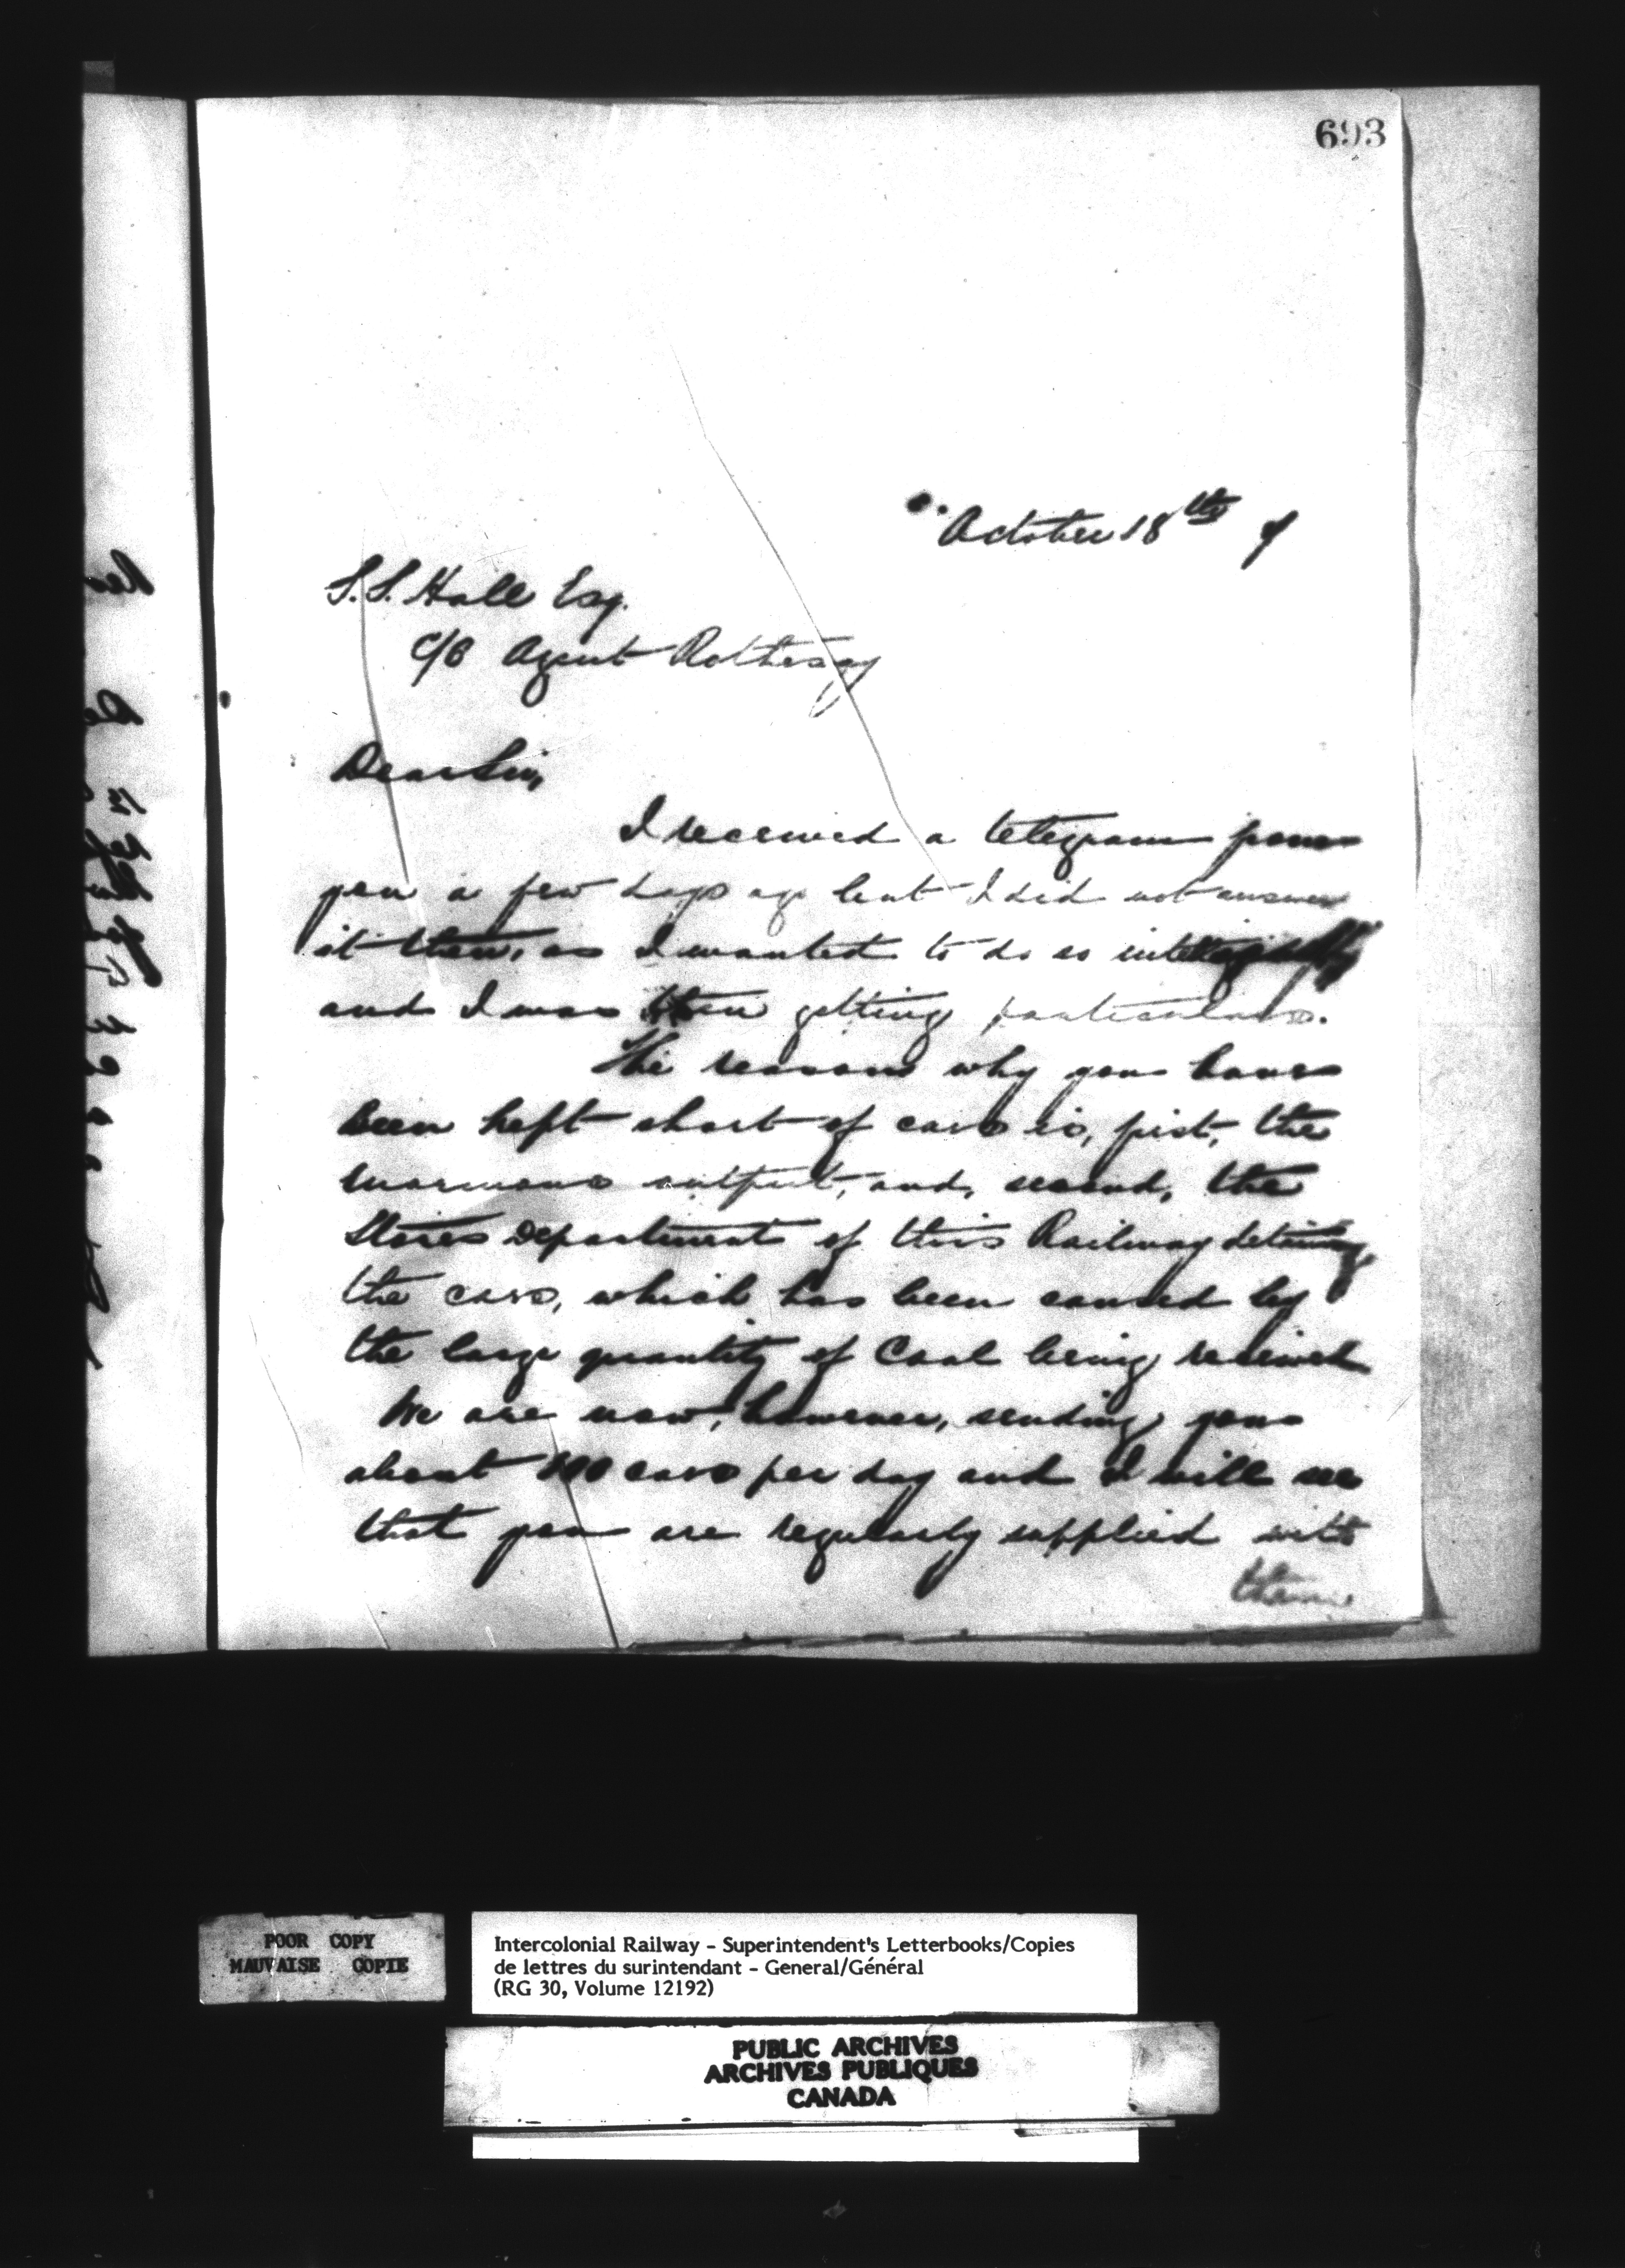 693
October 18th 9
S.S. Hall Esq.
C/O Agent Rothesay
Dear Sir,
I received a telegram from
you a few days ago but I did not answer
it then, as I wanted to do so intelligently
and I was then getting particulars.
The reason why you have
been kept short of cars is, first, the
enormous output, and, second, the
Stores Department of this Railway detaining
the cars, which has been caused by
the large quantity of Coal being received
We are now, however, sending you
about 100 cars per day and I will see
that you are regularly supplied with
them
POOR COPY
MAUVAISE COPIE
Intercolonial Railway - Superintendent's Letterbooks/Copies
de lettres du surintendant - General/Général
(RG 30, Volume 12192)
PUBLIC ARCHIVES
ARCHIVES PUBLIQUES
CANADA